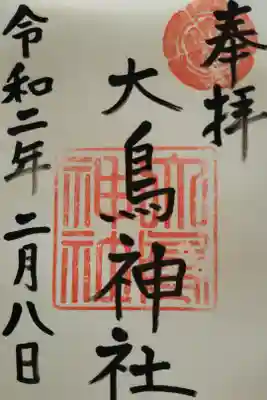 奉拝
大鳥神社
令和二年 二月八日